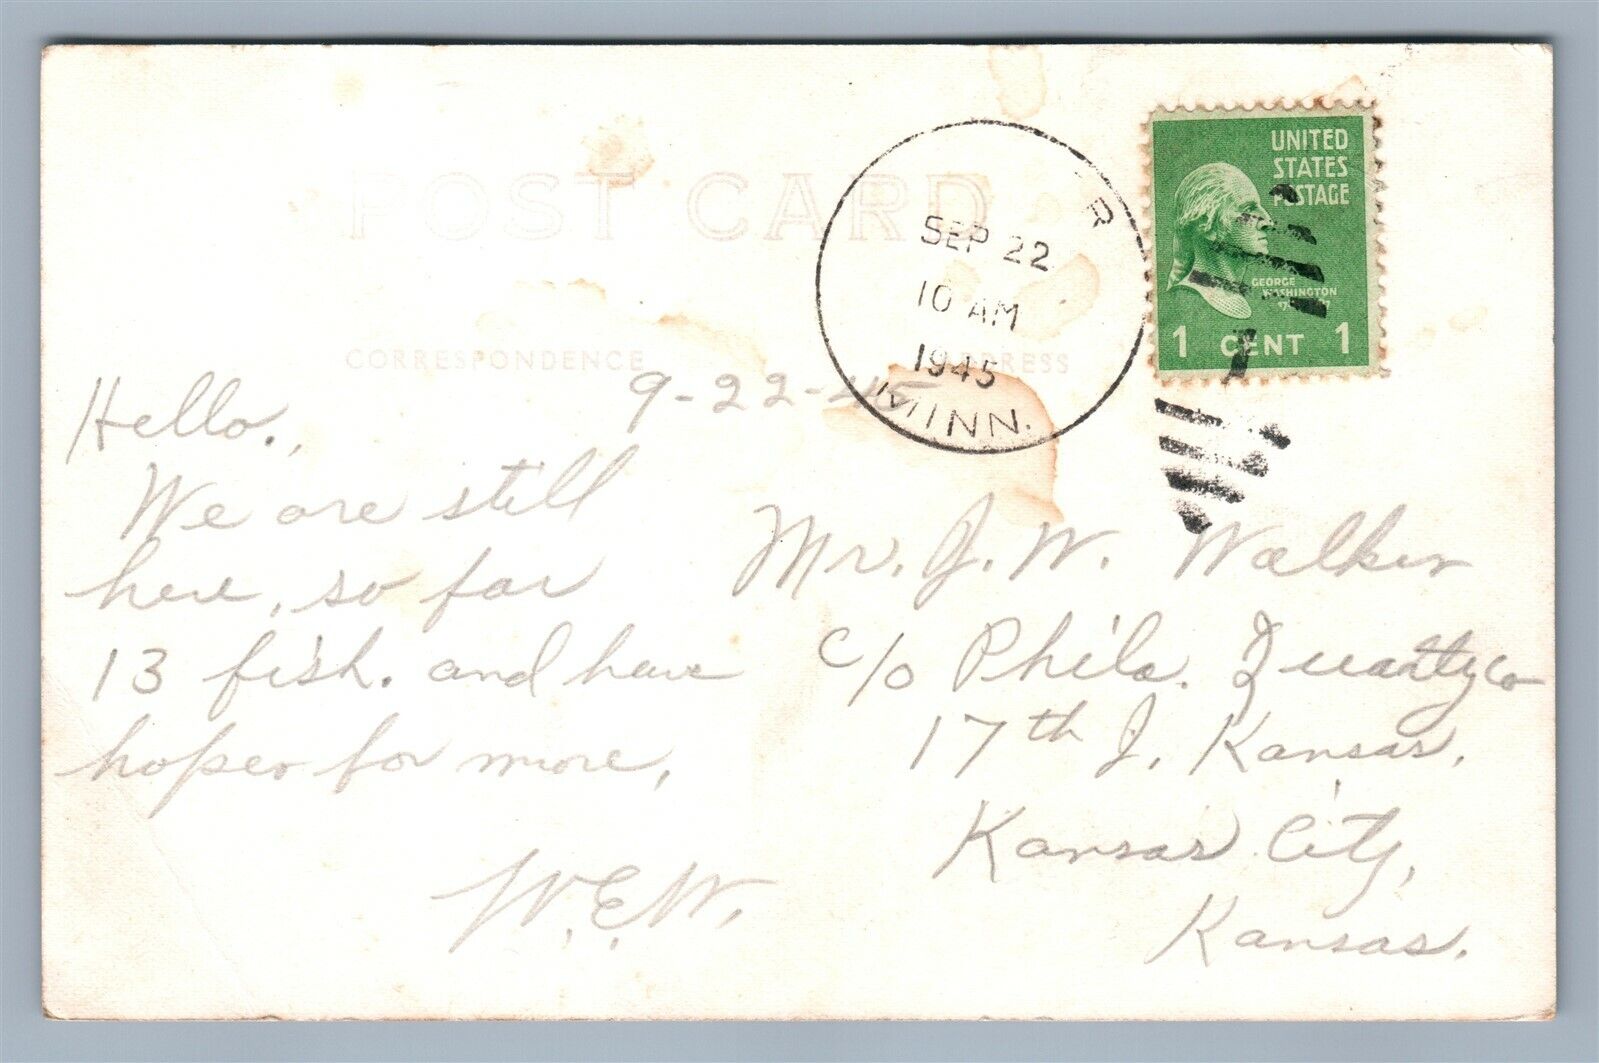 POST CARD
CORRESPONDENCE
ADDRESS
R
SEP 22
10 AM
1945
MINN.
UNITED
STATES
POSTAGE
GEORGE
WASHINGTON
1 CENT 1
9-22-45
Hello.,
We are still
here, so far
13 fish. and have
hopes for more,
W.E.W.
Mr. J. W. Walker
c/o Phila. Quartz Co
17th J. Kansas,
Kansas City,
Kansas.